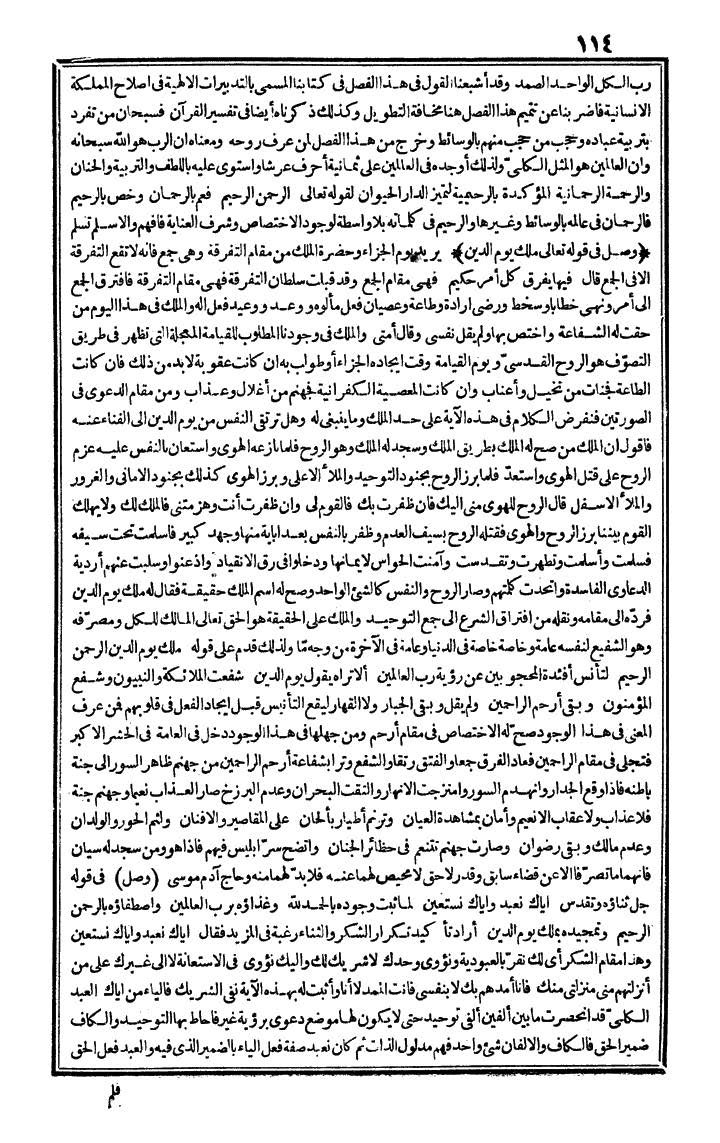 ١١٤
رب الكل الواحد الصمد وقد أشبعنا القول فى هذا الفصل فى كتابنا المسمى بالتدبيرات الالهية فى اصلاح المملكة
الانسانية فاضربنا عن تتميم هذا الفصل هنا مخافة التطويل وكذلك ذكرناه أيضا فى تفسير القرآن فسبحان من تفرد
بتربية عباده وحجب من حجب منهم بالوسائط وخرج من هذا الفصل لمن عرف روحه ومعناه ان الرب هو الله سبحانه
وان العالمين هو المثل الكلى ولذلك أوجده فى العالمين على ثمانية أحرف عرشا واستوى عليه باللطف والتربية والحنان
والرحمة الرحمانية المؤكدة بالرحيمية لتميز الدار الحيوان لقوله تعالى الرحمن الرحيم فعم بالرحمان وخص بالرحيم
فالرحمان فى عالمه بالوسائط وغيرها والرحيم فى كلماته بلا واسطة لوجود الاختصاص وشرف العناية فافهم والاسلم تسلم
﴿وصل فى قوله تعالى ملك يوم الدين﴾ يريد يوم الجزاء وحضرة الملك من مقام التفرقة وهى جمع فانه لا تقع التفرقة
الا فى الجمع قال فيها يفرق كل أمر حكيم فهى مقام الجمع وقد قبلت سلطان التفرقة فهى مقام التفرقة فافترق الجمع
الى أمر ونهى خطابا وسخط ورضى ارادة وطاعة وعصيان فعل مألوه ووعد ووعيد فعل اله والملك فى هذا اليوم من
حقت له الشفاعة واختص بها ولم يقل نفسى وقال أمتى والملك فى وجودنا المطلوب للقيامة المعجلة التى تظهر فى طريق
التصوف هو الروح القدسى ويوم القيامة وقت ايجاده الجزاء أو طولب به ان كانت عقوبة لا بد من ذلك فان كانت
الطاعة فجنات من نخيل وأعناب وان كانت المعصية الكفرانية فجهنم من أغلال وعذاب ومن مقام الدعوى فى
الصورتين فنفرض الكلام فى هذه الآية على حد الملك وما ينبغى له وهل ترتقى النفس من يوم الدين الى الفناء عنه
فاقول ان الملك من صح له الملك بطريق الملك وسجد له الملك وهو الروح فلما نازعه الهوى واستعان بالنفس عليه عزم
الروح على قتل الهوى واستعد فلما برز الروح بجنود التوحيد والملأ الاعلى وبرز الهوى كذلك بجنود الامانى والغرور
والملأ الاسفل قال الروح للهوى منى اليك فان ظفرت بك فالقوم لى وان ظفرت أنت وهزمتنى فالملك لك ولا يهلك
القوم بيننا برز الروح والهوى فقتله الروح بسيف العدم وظفر بالنفس بعد اباية منها وجهد كبير فاسلمت تحت سيفه
فسلمت وأسلمت وتطهرت وتقدست وآمنت الحواس لايمانها ودخلوا فى رق الانقياد واذعنوا وسلبت عنهم أردية
الدعاوى الفاسدة واتحدت كلمتهم وصار الروح والنفس كالشئ الواحد وصح له اسم الملك حقيقة فقال له ملك يوم الدين
فرده الى مقامه ونقله من افتراق الشرع الى جمع التوحيد والملك على الحقيقة هو الحق تعالى المالك للكل ومصرفه
وهو الشفيع لنفسه عامة وخاصة خاصة فى الدنيا وعامة فى الآخرة من وجه ما ولذلك قدم على قوله ملك يوم الدين الرحمن
الرحيم لتأنس أفئدة المحجوبين عن رؤية رب العالمين ألا تراه يقول يوم الدين شفعت الملائكة والنبيون وشفع
المؤمنون وبقى أرحم الراحمين ولم يقل وبقى الجبار ولا القهار ليقع التأنيس قبل ايجاد الفعل فى قلوبهم فمن عرف
المعنى فى هذا الوجود صح له الاختصاص فى مقام أرحم ومن جهلها فى هذا الوجود دخل فى العامة فى الحشر الاكبر
فتجلى فى مقام الراحمين فعاد الفرق جمعا والفتق رتقا والشفع وترا بشفاعة أرحم الراحمين من جهنم ظاهر السور الى جنة
باطنه فاذا وقع الجدار وانهدم السور وامتزجت الانهار والتقت البحران وعدم البرزخ صار العذاب نعيما وجهنم جنة
فلا عذاب ولا عقاب الا نعيم وأمان بمشاهدة العيان وترنم أطيار بألحان على المقاصير والافنان ولثم الحور والولدان
وعدم مالك وبقى رضوان وصارت جهنم تتنعم فى حظائر الجنان واتضح سر ابليس فيهم فاذا هو ومن سجد له سيان
فانهما ما تصرفا الا عن قضاء سابق وقدر لاحق لا محيص لهما عنه فلا بد لهما منه وحاج آدم موسى (وصل) فى قوله
جل ثناؤه وتقدس اياك نعبد واياك نستعين لما ثبت وجوده بالحمد لله وغذاؤه برب العالمين واصطفاؤه بالرحمن
الرحيم وتمجيده بملك يوم الدين أراد تأكيد تكرار الشكر والثناء رغبة فى المزيد فقال اياك نعبد واياك نستعين
وهذا مقام الشكر أى لك نقر بالعبودية ونؤوى وحدك لا شريك لك واليك نؤوى فى الاستعانة لا الى غيرك على من
أنزلتهم منى منزلتى منك فانا أمدهم بك لا بنفسى فانت الممد لا أنا وأثبت له بهذه الآية نفى الشريك فالياء من اياك العبد
الكلى قد انحصرت ما بين ألفين ألفى توحيد حتى لا يكون لها موضع دعوى برؤية غير فاحاط بها التوحيد والكاف
ضمير الحق فالكاف والالفان شئ واحد فهم مدلول الذات ثم كان نعبد صفة فعل الياء بالضمير الذى فيه والعبد فعل الحق
فلم